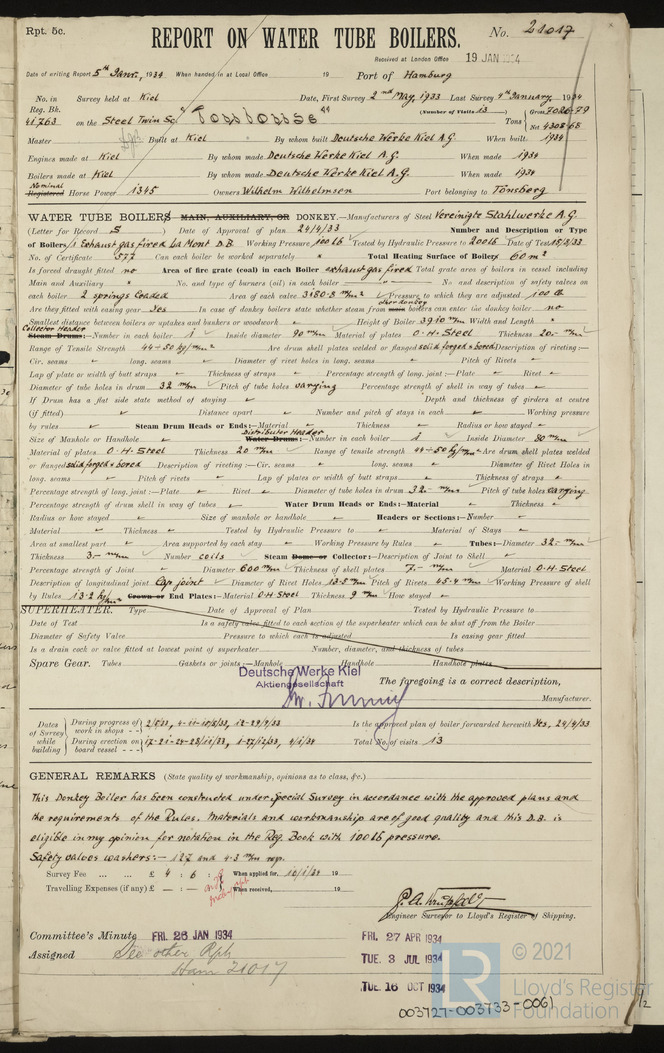 Rpt. 5c.
REPORT ON WATER TUBE BOILERS. No. 21017
Received at London Office 19 JAN 1934
Date of writing Report 5th Janr., 1934 When handed in at Local Office 19 Port of Hamburg
No. in Reg. Bk. Survey held at Kiel Date, First Survey 2nd May, 1933 Last Survey 4th January, 1934
(Number of Visits 13) Gross 7026.79
41763 on the Steel Twin Sc. "Toulouse" Tons Net 4308.68
Master Built at Kiel By whom built Deutsche Werke Kiel A.G. When built 1934
Engines made at Kiel By whom made Deutsche Werke Kiel A.G. When made 1934
Boilers made at Kiel By whom made Deutsche Werke Kiel A.G. When made 1934
Nominal Registered Horse Power 1345 Owners Wilhelm Wilhelmsen Port belonging to Tönsberg
WATER TUBE BOILERS MAIN, AUXILIARY, OR DONKEY.—Manufacturers of Steel Vereinigte Stahlwerke A.G.
(Letter for Record S) Date of Approval of plan 24/4/33 Number and Description or Type
of Boilers 1 Exhaust gas fired La Mont D.B. Working Pressure 100 lb Tested by Hydraulic Pressure to 200 lb Date of Test 15/8/33
No. of Certificate 572 Can each boiler be worked separately " Total Heating Surface of Boilers 60 m²
Is forced draught fitted no Area of fire grate (coal) in each Boiler exhaust gas fired Total grate area of boilers in vessel including
Main and Auxiliary " No. and type of burners (oil) in each boiler — " — No and description of safety valves on
each boiler 2 springs loaded Area of each valve 3180.8 m/m² Pressure to which they are adjusted 100 lb
Are they fitted with easing gear Yes In case of donkey boilers state whether steam from main boilers can enter the donkey boiler no
Smallest distance between boilers or uptakes and bunkers or woodwork Height of Boiler 3910 m/m Width and Length "
Collector Header
Steam Drums:—Number in each boiler 1 Inside diameter 90 m/m Material of plates O.H. Steel Thickness 20.- m/m
Range of Tensile Strength 44-50 kg/m/m² Are drum shell plates welded or flanged solid forged & bored Description of riveting:—
Cir. seams long. seams Diameter of rivet holes in long. seams Pitch of Rivets
Lap of plate or width of butt straps Thickness of straps Percentage strength of long. joint:—Plate Rivet
Diameter of tube holes in drum 32 m/m Pitch of tube holes varying Percentage strength of shell in way of tubes
If Drum has a flat side state method of staying Depth and thickness of girders at centre
(if fitted) Distance apart Number and pitch of stays in each Working pressure
by rules Steam Drum Heads or Ends:—Material Thickness Radius or how stayed
Distributor Header
Size of Manhole or Handhole Water Drums:—Number in each boiler 1 Inside Diameter 80 m/m
Material of plates O.H. Steel Thickness 20 m/m Range of tensile strength 44-50 kg/m/m² Are drum shell plates welded
or flanged solid forged & bored Description of riveting:—Cir. seams long. seams Diameter of Rivet Holes in
long. seams Pitch of rivets Lap of plates or width of butt straps Thickness of straps
Percentage strength of long. joint:—Plate Rivet Diameter of tube holes in drum 32.- m/m Pitch of tube holes varying
Percentage strength of drum shell in way of tubes Water Drum Heads or Ends:—Material Thickness
Radius or how stayed Size of manhole or handhole Headers or Sections:—Number
Material Thickness Tested by Hydraulic Pressure to Material of Stays
Area at smallest part Area supported by each stay Working Pressure by Rules Tubes:—Diameter 32.- m/m
Thickness 3.- m/m Number coils Steam Dome or Collector:—Description of Joint to Shell
Percentage strength of Joint Diameter 600 m/m Thickness of shell plates 7.- m/m Material O.H. Steel
Description of longitudinal joint Lap joint Diameter of Rivet Holes 13.5 m/m Pitch of Rivets 45.4 m/m Working Pressure of shell
by Rules 13.2 kg/cm² Crown or End Plates:—Material O.H. Steel Thickness 9 m/m How stayed
SUPERHEATER. Type Date of Approval of Plan Tested by Hydraulic Pressure to
Date of Test Is a safety valve fitted to each section of the superheater which can be shut off from the Boiler
Diameter of Safety Valve Pressure to which each is adjusted Is easing gear fitted
Is a drain cock or valve fitted at lowest point of superheater Number, diameter, and thickness of tubes
Spare Gear. Tubes Gaskets or joints:—Manhole Handhole Handhole plates
Deutsche Werke Kiel
Aktiengesellschaft
The foregoing is a correct description,
Manufacturer.
Dates of Survey while building
During progress of work in shops - - 2/5/33, 4-11-10/8/33, 12-29/9/33 Is the approved plan of boiler forwarded herewith Yes, 24/4/33
During erection on board vessel - - - 17-21-24-28/11/33, 1-27/12/33, 4/1/34 Total No. of visits 13
GENERAL REMARKS (State quality of workmanship, opinions as to class, &c.)
This Donkey Boiler has been constructed under Special Survey in accordance with the approved plans and
the requirements of the Rules. Materials and workmanship are of good quality and this D.B. is
eligible in my opinion for notation in the Reg. Book with 100 lb pressure.
Safety valves washers:— 12.7 and 4.3 m/m resp.
Survey Fee ... ... £ 4 : 6 : When applied for, 10/1/34 19
Travelling Expenses (if any) £ — : — : When received, 19
Engineer Surveyor to Lloyd's Register of Shipping.
Committee's Minute FRI. 26 JAN 1934 FRI. 27 APR 1934
TUE. 3 JUL 1934
Assigned See other Rpt
Ham 21017
TUE. 16 OCT 1934
© 2021
Lloyd's Register
Foundation
LR
003727-003733-0061